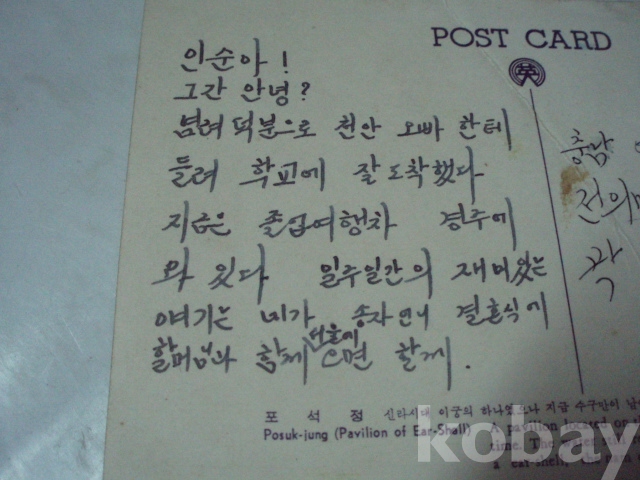 POST CARD
英
인순아!
그간 안녕?
념려 떡분으로 천안 오빠 한테
들려 학교에 잘 도착했다
지금은 졸업여행차 경주에
와 있다 일주일간의 재미있는
얘기는 네가 송자 언니 결혼식에
서울에
할머님과 함께 오면 할께.
충남
전의
포 석 정 신라시대 이궁의 하나였으나 지금 수구만이
Posuk-jung (Pavilion of Ear-Shell) A pavilion located on
time. The
a ear-shell,
kobay